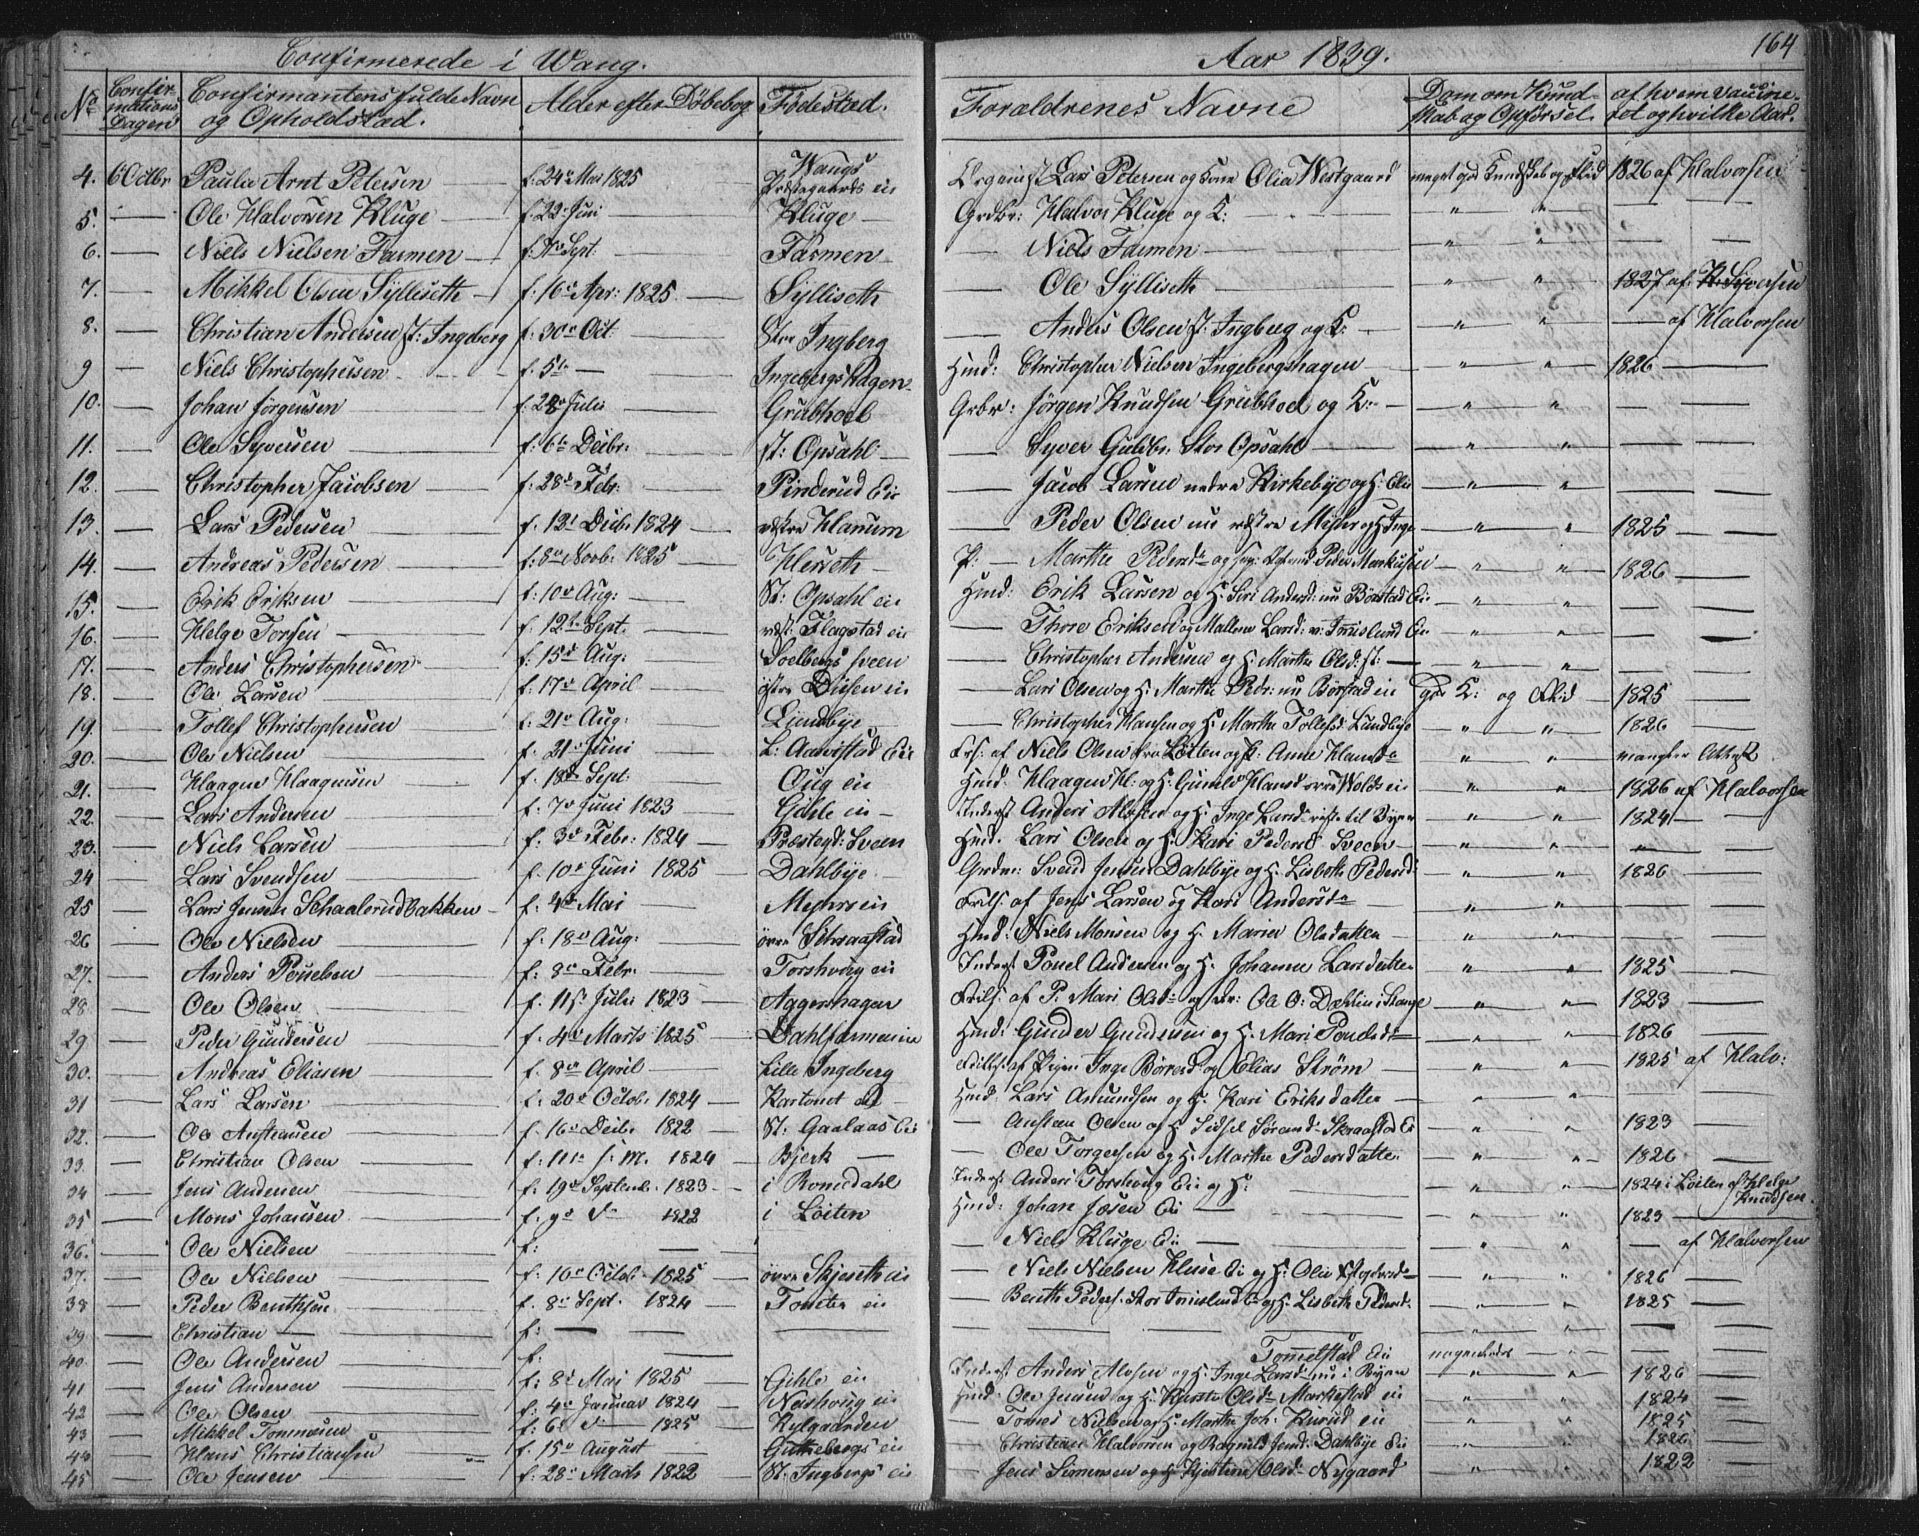 Confirmerede i Wang.
Aar 1839.
164
No
Confir-mations Dagen
Confirmantens fulde Navn og Opholdstad.
Alder efter Døbebog
Fødestad.
Forældrenes Navne
Dom om Kund-skab og Opførsel.
af hvem vaccine-ret og hvilke Aar.
4. 6 Octbr Paulu Arnt Petersen f. 24de Mai 1825 Wangs Præstegaards ei Organist Lars Petersen og Kone Olia Westgaard meget god Kundskab og Flid 1826 af Halvorsen
5. — Ole Halvorsen Kluge f. 22 Juni Kluge Grdbr: Halvor Kluge og K: " " — —
6. — Niels Nielsen Farmen f. Sept. Farmen — Niels Farmen " " — —
7. — Mikkel Olsen Sylliseth f. 16de Apr: 1825 Sylliseth — Ole Sylliseth " " 1827 af Syversen
8. — Christian Andersen St: Ingeberg f. 30te Oct. Stor Ingberg — Anders Olsen St: Ingberg og K: " " — af Halvorsen
9 — Niels Christophersen f. 5te — Ingebergs Hagen Huusd: Christopher Nielsen Ingebergshagen " " 1826 —
10. — Johan Jørgensen f. 28de Julii Grubhoel Grbr: Jørgen Knudsen Grubhoel og K: " " — —
11. — Ole Syversen f. 6te Decbr: St: Opsahl — Syver Guldbr: Stor Opsahl " " — —
12. — Christopher Jacobsen f. 28de Febr: Pinderud Eie — Jacob Larsen nedre Kirkebye og H. Elie " " — —
13. — Lars Pedersen f. 13de Decbr. 1824 vestre Hanum — Peder Olsen nu vestre Myhr og H. Inge " " 1825 —
14. — Andreas Pedersen f. 8de Novb: 1825 Herseth P: — Marthe Pedersd: og Peder Markusen " " 1826 —
15. — Erik Eriksen f. 10de Aug: St: Opsahl ei Huusd: Erik Larsen og H. Siri Andersd: nu Børstad Ei " " — —
16. — Helge Torsen f. 12te Sept. vest: Flagstad ei — Thore Eriksen og Malene Larsd: v: Imislund Eie " " — —
17. — Anders Christophersen f. 15de Aug: Soelbergs sveen — Christopher Andersen og H. Marthe Olsd: st: — " " — —
18. — Ole Larsen f. 17de April østre Disen ei — Lars Olsen og H. Marthe Pedr: nu Børstad ei god K: og Flid 1825 —
19. — Tollef Christophersen f. 21de Aug: Lundbye — Christopher Hansen og H. Marthe Tollefsd. Lundbye " " 1826 —
20. — Ole Nielsen f. 21de Juni L: Aamstad Eie Frs: af Niels Olsen fra Løiten og P: Anne Hansd " " mangler Attest
21. — Haagen Haagensen f. 18de Sept: Oug ei Huusd: Haagen H: og H: Gunild Hansd øvre Wolds ei " " 1826 af Halvorsen
22. — Lars Andersen f. 7de Juni 1823 Gihle ei Inderst Anders Alfsen og H. Inge Larsd reist til Byen " " 1824 —
23. — Niels Larsen f. 3de Febr. 1824 Præstegd: Sveen Huusd. Lars Olsen og H. Kari Pedersd Sveen " " — —
24 — Lars Svendsen f. 10de Juni 1825 Dahlbye Grdm: Svend Jensen Dahlbye og H. Lisbeth Pedersd " " 1826 —
25 — Lars Jensen Schaalerudbakken f. 4de Mai Myhrs ei Frils: af Jens Larsen og Kari Andersd " " — —
26 — Ole Nielsen f. 18de Aug: øvre Schraastad Huusd: Niels Monsen og H. Marie Olsdatter " " — —
27. — Anders Pouelsen f. 8de Febr. Torshoug ei Inderst Pouel Andersen og H. Johanne Larsdatter " " 1825 —
28. — Ole Olsen f. 11te Julii 1823 Aggershagen Frils: af P. Mari Olsd og Ole O: Dahlin i Stange " " 1823 —
29 — Peder Gundersen f. 4de Marts 1825 Dahlfarmen ei Huusd: Gunder Gundersen og H. Mari Pouelsd " " 1826 —
30. — Andreas Eliasen f. 8de April Lille Ingeberg Frils: af Pigen Inge Børresd og Elias Strøm " " 1825 af Halv:
31 — Lars Larsen f. 20de Octob: 1824 Kastonet ei Huusd. Lars Amundsen og H. Kari Eriksdatter " " — —
32. — Ole Austensen f. 16de Decbr 1822 St. Gaalaas Ei — Austan Olsen og H. Sidsel Sørensd: Skraastad Ei " " 1823 —
33. — Christian Olsen f. 11te s. M. 1824 Bjerk — Ole Torgersen og H. Marthe Pedersdatter " " 1826 —
34 — Jens Andersen f. 19de Septemb. 1823 i Romedahl Inderst: Anders Torshoug Eie og H: — " " 1824 i Løiten af Helge Knudsen
35 — Mons Johansen f. 9de — 1822 i Løiten Huusd: Johan Josen Ei — " " 1823 —
36. — Ole Nielsen f: — — Niels Kluge Ei " " — af Halvorsen
37. — Ole Nielsen f. 10de Octob: 1825 øvre Skjeseth ei — Niels Nielsen Kluse Ei og H. Olia " " 1826 —
38 — Peder Benthsen f. 8de Sept. 1824 Tomter ei — Benth Peders. Stor Imislund Ei og H. Lisbeth Pedersd. " " 1825 —
39 — Christian — f: — — — — — " " — —
40. — Ole Andersen f. — Tommelstad Ei nogenledes — " — —
41 — Jens Andersen f. 8de Mai 1825 Gihle ei Inderst Anders Alvsen og H. Inge Larsd nu i Byen " " 1826 —
42 — Ole Olsen f. 4de Januar 1824 Neshoug ei Huusd: Ole Jensen og H. Kirste Olsd Markestad ei " " 1824 —
43 — Mikkel Tommesen f. 6te — 1825 Kylgaarden — Tomes Nielsen og H. Marthe Joh. Rurud ei " " 1825 —
44 — Hans Christiansen f. 15de August Gutterbergs ei — Christian Halvorsen og Ragnild Jensd. Dahlbye Ei " " 1826 —
45 — Ole Jensen f. 28de Marts 1822 St. Ingbergs ei — Jens Simensen og H. Kjerstine Olsd Nygaard " " 1822 —